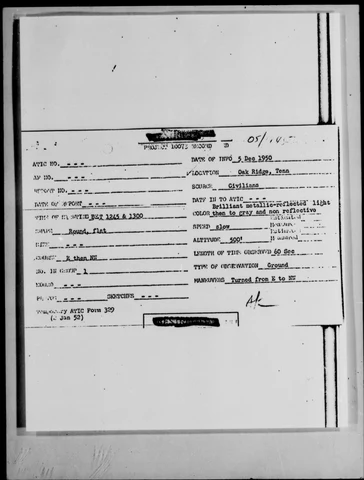 PROJECT 10073 RECORD
ATIC NO. - - -
AF NO. - - -
REPORT NO. - - -
DATE OF REPORT - - -
TIME OF SIGHTING EST 1245 & 1300
SHAPE Round, flat
SIZE - - -
COURSE E then NE
NO. IN GROUP 1
- - -
PHOTOS - - - SKETCHES - - -
Temporary ATIC Form 329
(2 Jan 52)
DATE OF INFO 5 Dec 1950
LOCATION Oak Ridge, Tenn
SOURCE Civilians
DATE IN TO ATIC - - -
Brilliant metallic-reflected light
COLOR then to grey and non reflective
SPEED slow
ALTITUDE 500'
LENGTH OF TIME OBSERVED 60 Sec
TYPE OF OBSERVATION Ground
MANEUVERS Turned from E to NE